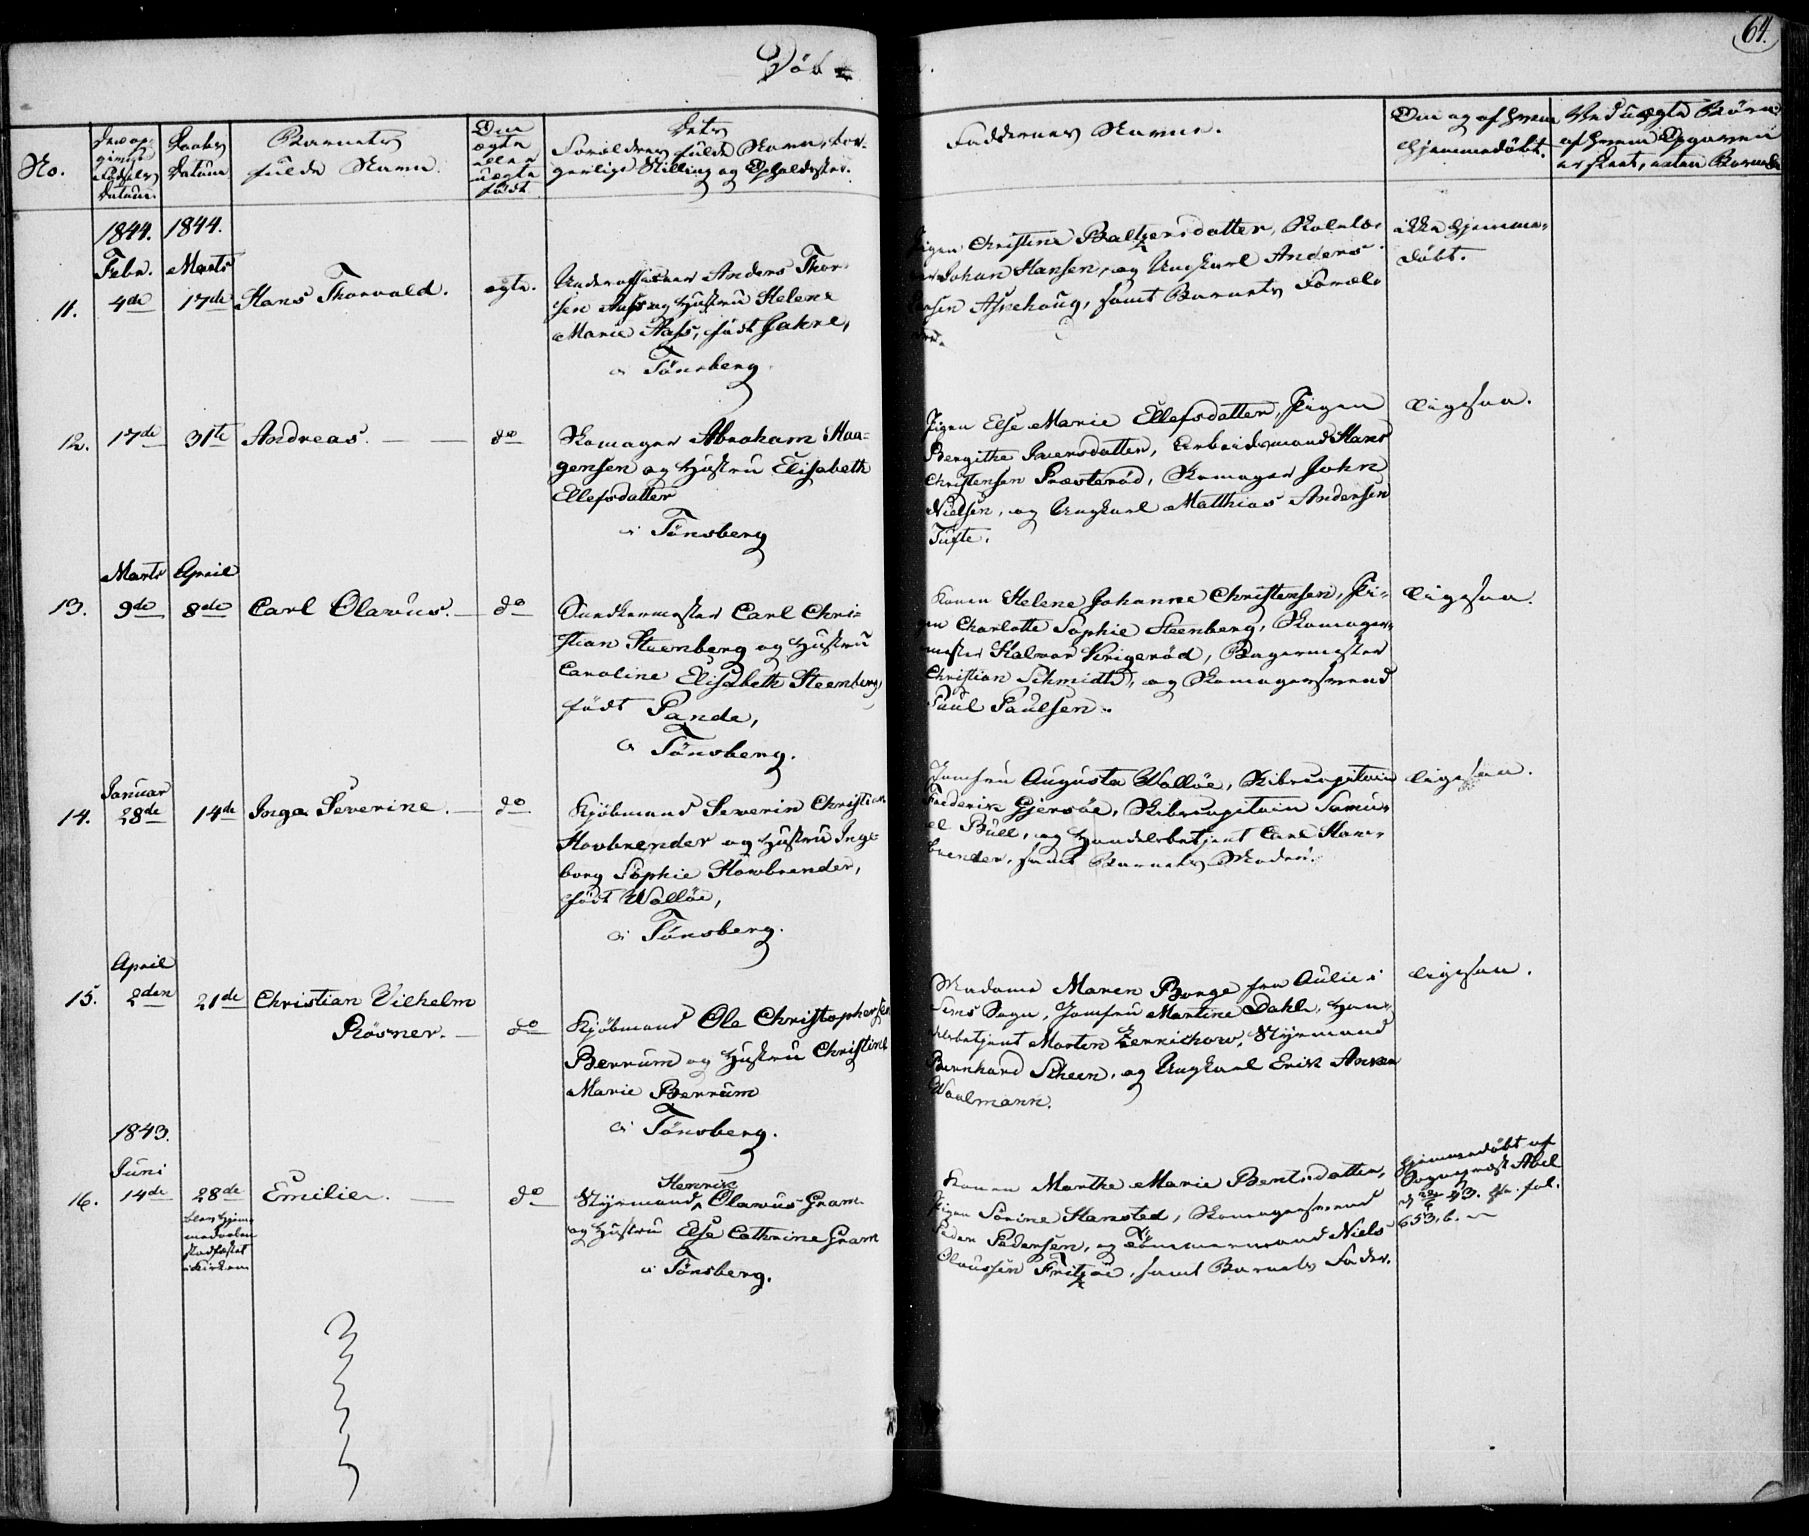 Döbte.
64.
No.
Daabs Datum
Barnets fulde Navn.
Om ægte eller uægte födt
Dets Forældres fulde Navn, borgerlige Stilling og Opholdssted.
Faddernes Navne.
Om og af hvem hjemmedöbt.
Ved uægte Börn: af hvem Opgaven er skeet, uden Barnets
1844. 1844.
Febr. Marts
11. 4de 17de Hans Thorvald. ægte.
Underofficeer Anders Thor-
sen Aass og Hustru Helene
Marie Aass, födt Jahre,
i Tönsberg.
Pigen Christine Baltzersdatter, Skolelæ-
rer Johan Hansen, og Ungkarl Anders
Larsen Aspehoug, samt Barnets Foræl-
dre.
ikke hjemme-
döbt.
12. 17de 31te Andreas. do
Skomager Abraham Haa-
gensen og Hustru Elisabeth
Ellefsdatter
i Tönsberg
Pigen Else Marie Ellefsdatter, Pigen
Bergithe Iversdatter, Arbeidsmand Hans
Christensen Præsteröd, Skomager John
Nielsen, og Ungkarl Matthias Andersen
Tufte.
ligesaa.
Marts April
13. 9de 8de Carl Olavus. do
Snedkermester Carl Chri-
stian Steenberg og Hustru
Caroline Elisabeth Steenberg,
födt Sande,
i Tönsberg.
Konen Helene Johanne Christensen, Pi-
gen Charlotte Sophie Steenberg, Skomager-
mester Halvor Krigeröd, Bagermester
Christian Schmidt, og Skomagersvend
Paul Paulsen.
ligesaa.
Januar
14. 28de 14de Inga Severine. do
Kjöbmand Severin Christian
Howbrender og Hustru Inge-
borg Sophie Howbrender,
födt Wallöe,
i Tönsberg.
Jomfru Augusta Wallöe, Skibscapitain
Frederik Gjersöe, Skibscapitain Samu-
el Bull, og Handelsbetjent Carl How-
brender, samt Barnets Moder.
ligesaa.
April
15. 2den 21de Christian Vilhelm
Rösner. do
Kjöbmand Ole Christophersen
Berrum og Hustru Christine
Marie Berrum
i Tönsberg.
Madame Maren Borge fra Aulie i
Sems Sogn, Jomfru Martine Dahl, Han-
delsbetjent Morten Zernichow, Styrmand
Bernhard Scheen, og Ungkarl Erik Ansen
Waalmann.
ligesaa.
1843.
Juni
16. 14de 28de Emilie. do
blev Hjem-
medaaben
stadfæstet
i Kirken
Styrmand Henrik Olavus Gram
og Hustru Else Cathrine Gram
i Tönsberg.
Konen Marthe Marie Bentsdatter,
Pigen Sörine Hansted, Skomagersvend
Peder Pedersen, og Tömmermand Niels
Claussen Fritzöe, samt Barnets Fader.
Hjemmedöbt af
Sognepræst Abel
43. fol.
653, b.